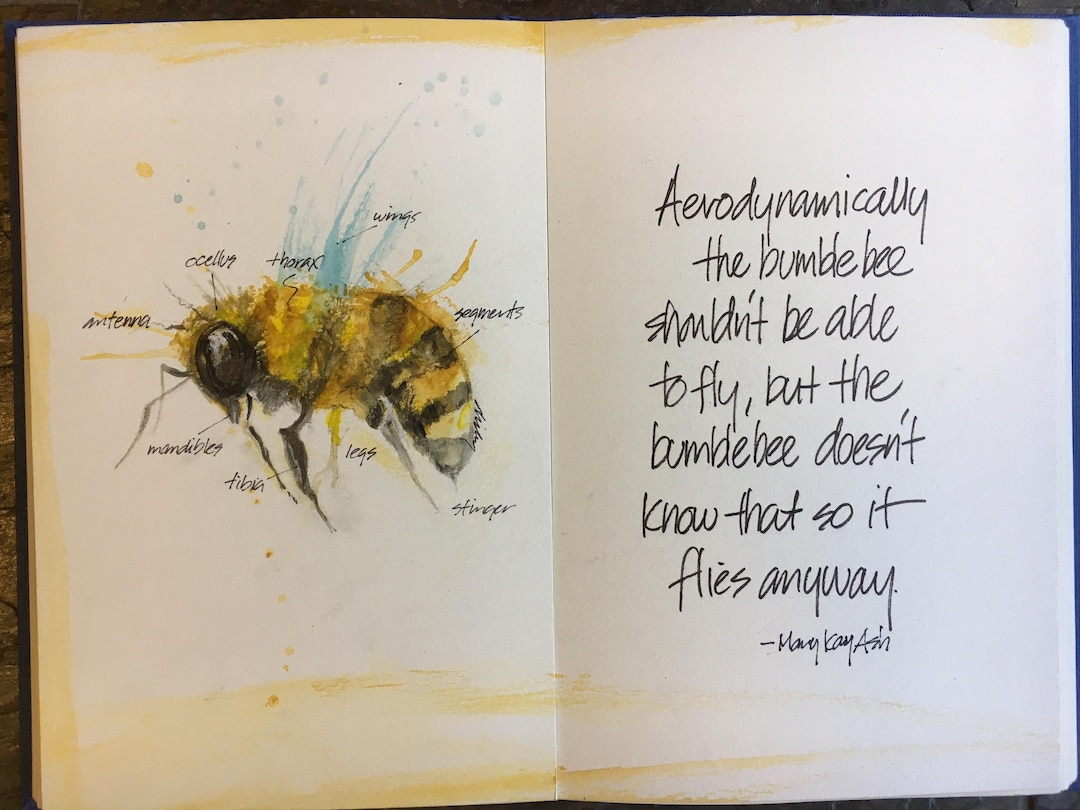 wings
ocellus
thorax
antenna
segments
mandibles
legs
tibia
stinger
Aerodynamically
the bumblebee
shouldn't be able
to fly, but the
bumblebee doesn't
know that so it
flies anyway.
-Mary Kay Ash